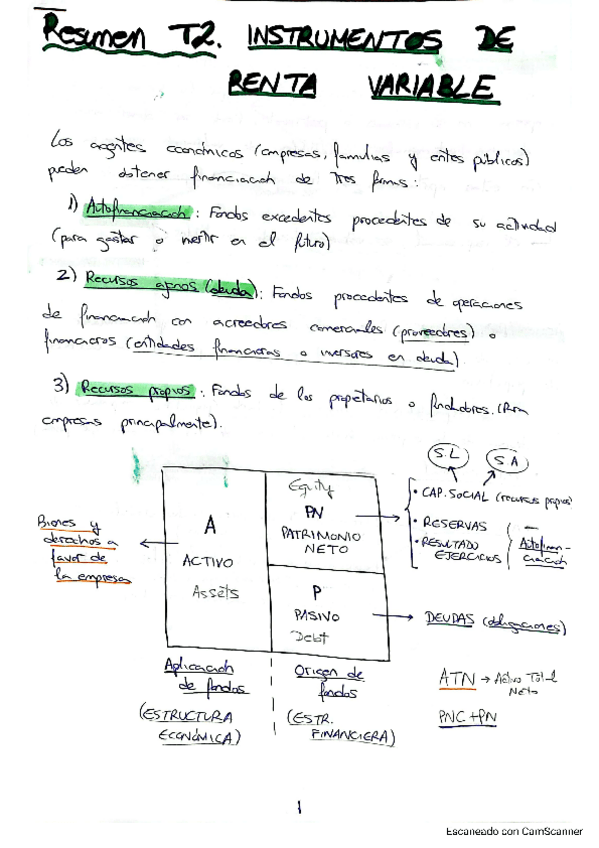 Resumen T2. INSTRUMENTOS DE
RENTA VARIABLE
Los agentes económicos (empresas, familias y entes públicos)
pueden obtener financiación de tres formas:
1) Autofinanciación: Fondos excedentes procedentes de su actividad
(para gastar o invertir en el futuro)
2) Recursos ajenos (deuda): Fondos procedentes de operaciones
de financiación con acreedores comerciales (proveedores) o
financieros (entidades financieras o inversores en deuda).
3) Recursos propios: Fondos de los propietarios o fundadores. (Para
empresas principalmente).
S.L
S.A
Bienes y
derechos a
favor de
la empresa
A
ACTIVO
Assets
Equity
PN
PATRIMONIO
NETO
• CAP. SOCIAL (recursos propios)
• RESERVAS
• RESULTADO
EJERCICIOS
Autofinan-
ciación
P
PASIVO
Debt
DEUDAS (obligaciones)
Aplicación
de fondos
(ESTRUCTURA
ECONÓMICA)
Origen de
fondos
(ESTR.
FINANCIERA)
ATN → Activo Total
Neto
PNC + PN
1
Escaneado con CamScanner